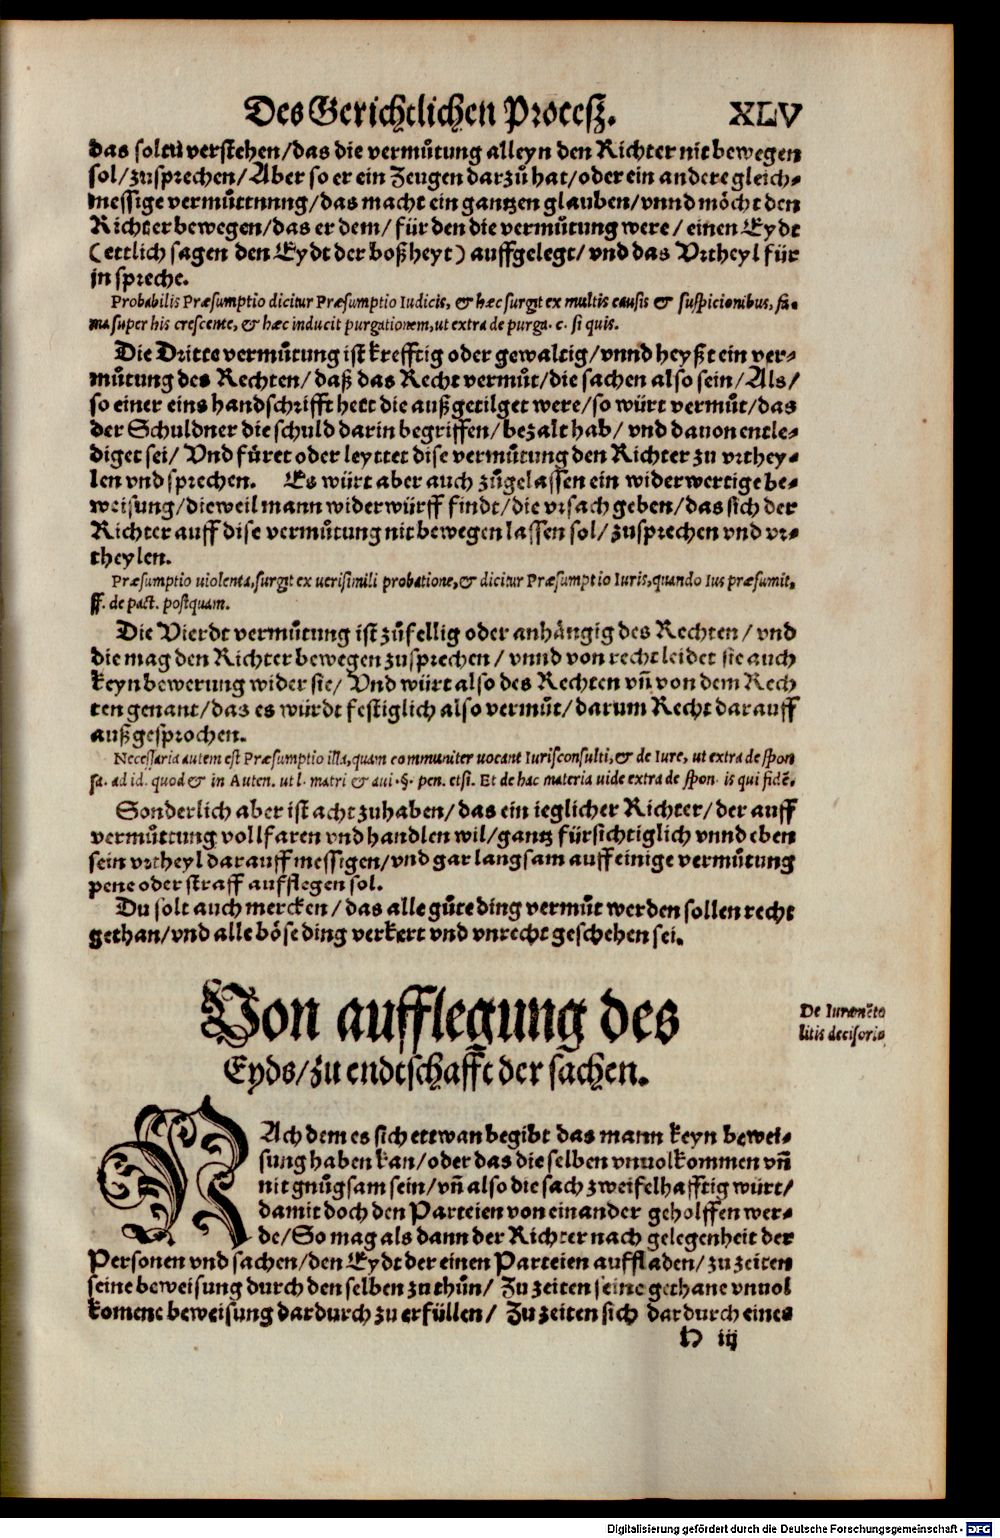 Des Gerichtlichen Procesz. XLV
das soltu verstehen/das die vermůtung alleyn den Richter nit bewegen
sol/zusprechen/Aber so er ein Zeugen darzů hat/oder ein andere gleich-
messige vermůttnung/das macht ein gantzen glauben/vnnd möcht den
Richter bewegen/das er dem/für den die vermůtung were/einen Eydt
(ettlich sagen den Eydt der boßheyt) auffgelegt/vnd das Vrtheyl für
jn spreche.
Probabilis Præsumptio dicitur Præsumptio Iudicis, & hæc surgit ex multis causis & suspicionibus, fa-
ma super his crescente, & hæc inducit purgationem, ut extra de purga. c. si quis.
Die Dritte vermůtung ist krefftig oder gewaltig/vnnd heyßt ein ver-
můtung des Rechten/daß das Recht vermůt/die sachen also sein/Als/
so einer eins handschrifft hett die außgetilget were/so würt vermůt/das
der Schuldner die schuld darin begriffen/bezalt hab/vnd dauon entle-
diget sei/Vnd fůret oder leyttet dise vermůtung den Richter zu vrthey-
len vnd sprechen. Es würt aber auch zůgelassen ein widerwertige be-
weisung/dieweil mann widerwürff findt/die vrsach geben/das sich der
Richter auff dise vermůtung nit bewegen lassen sol/zusprechen vnd vr-
theylen.
Præsumptio uiolenta, surgit ex uerisimili probatione, & dicitur Præsumptio Iuris, quando Ius præsumit,
ff. de pact. postquam.
Die Vierdt vermůtung ist zůfellig oder anhängig des Rechten/vnd
die mag den Richter bewegen zusprechen/vnnd von recht leidet sie auch
keyn bewerung wider sie/Vnd würt also des Rechten vñ von dem Rech
ten genant/das es würdt festiglich also vermůt/darum Recht darauff
außgesprochen.
Necessaria autem est Præsumptio illa, quam communiter uocant Iurisconsulti, & de Iure, ut extra de spon
sa. ad id. quod & in Auten. ut l. matri & aui. §. pen. etsi. Et de hac materia uide extra de spon. is qui fidẽ.
Sonderlich aber ist acht zuhaben/das ein ieglicher Richter/der auff
vermůttung vollfaren vnd handlen wil/gantz fürsichtiglich vnnd eben
sein vrtheyl darauff messigen/vnd gar langsam auff einige vermůtung
pene oder straff aufflegen sol.
Du solt auch mercken/das alle gůte ding vermůt werden sollen recht
gethan/vnd alle böse ding verkert vnd vnrecht geschehen sei.
Von aufflegung des
Eyds/zu endtschafft der sachen.
De Iuramẽto
litis decisorio
NAch dem es sich ettwan begibt das mann keyn bewei-
sung haben kan/oder das die selben vnuolkommen vñ
nit gnůgsam sein/vñ also die sach zweifelhafftig würt/
damit doch den Parteien von einander geholffen wer-
de/So mag als dann der Richter nach gelegenheit der
Personen vnd sachen/den Eydt der einen Parteien auffladen/zu zeiten
seine beweisung durch den selben zu thůn/Zu zeiten seine gethane vnuol
komene beweisung dardurch zu erfüllen/Zu zeiten sich dardurch eines
H iij
Digitalisierung gefördert durch die Deutsche Forschungsgemeinschaft - DFG